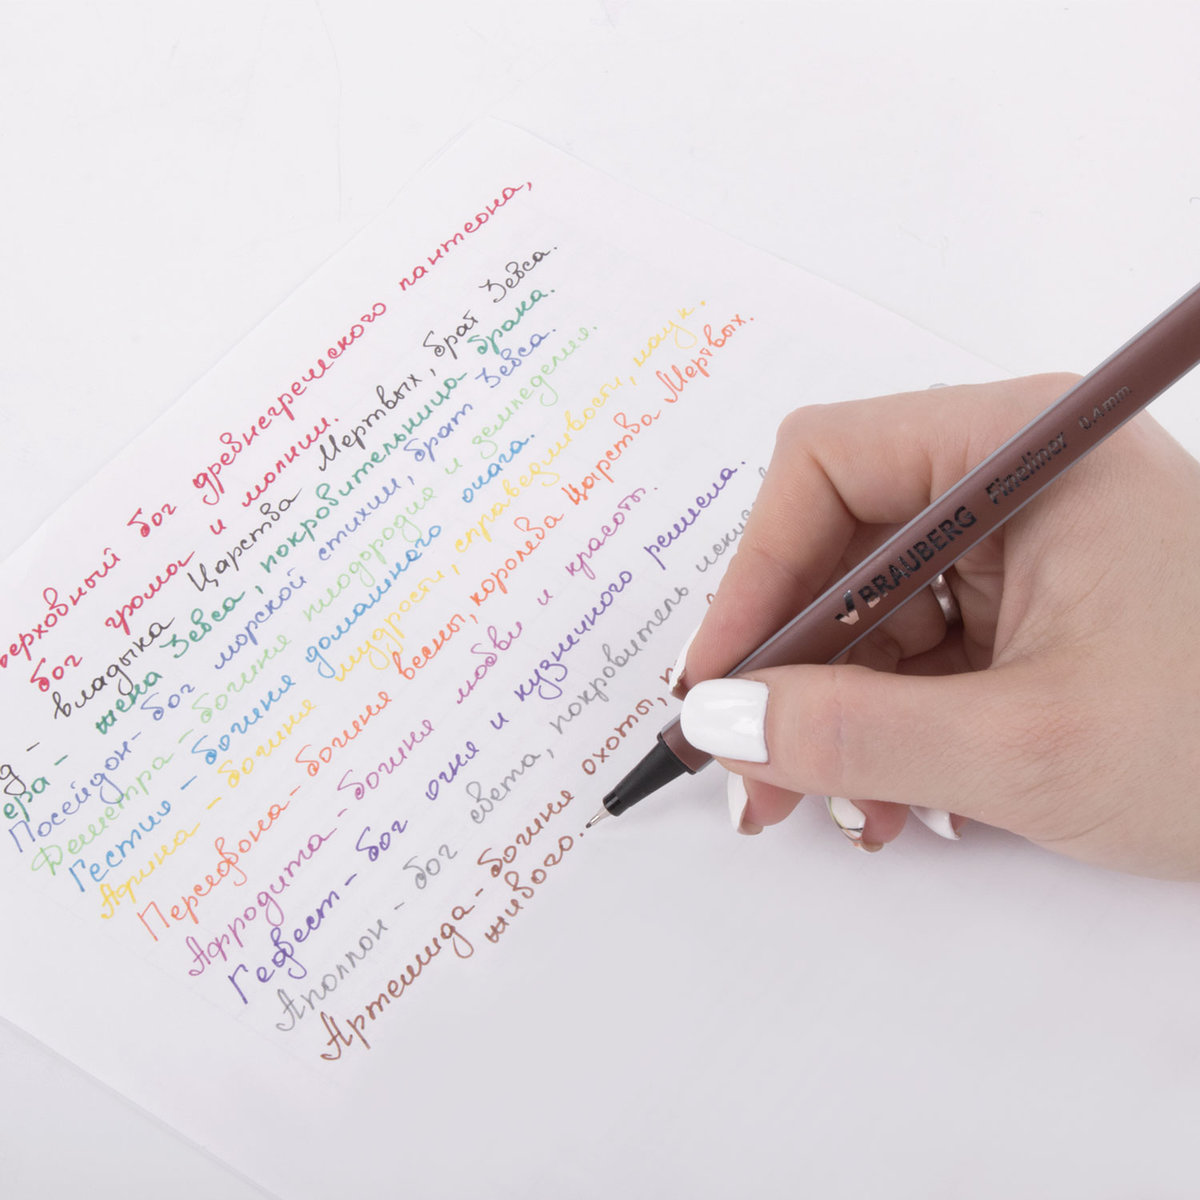 верховный бог древнегреческого пантеона,
бог грома и молнии.
владыка Царства Мертвых, брат Зевса.
жена Зевса, покровительница брака.
Посейдон - бог морской стихии, брат Зевса.
Деметра - богиня плодородия и земледелия.
Гестия - богиня домашнего очага.
Афина - богиня мудрости, справедливости, наук.
Персефона - богиня весны, королева Царства Мертвых.
Афродита - богиня любви и красоты.
Гефест - бог огня и кузнечного ремесла.
Аполлон - бог света, покровитель
Артемида - богиня охоты,
живого.
BRAUBERG Fineliner 0.4 mm